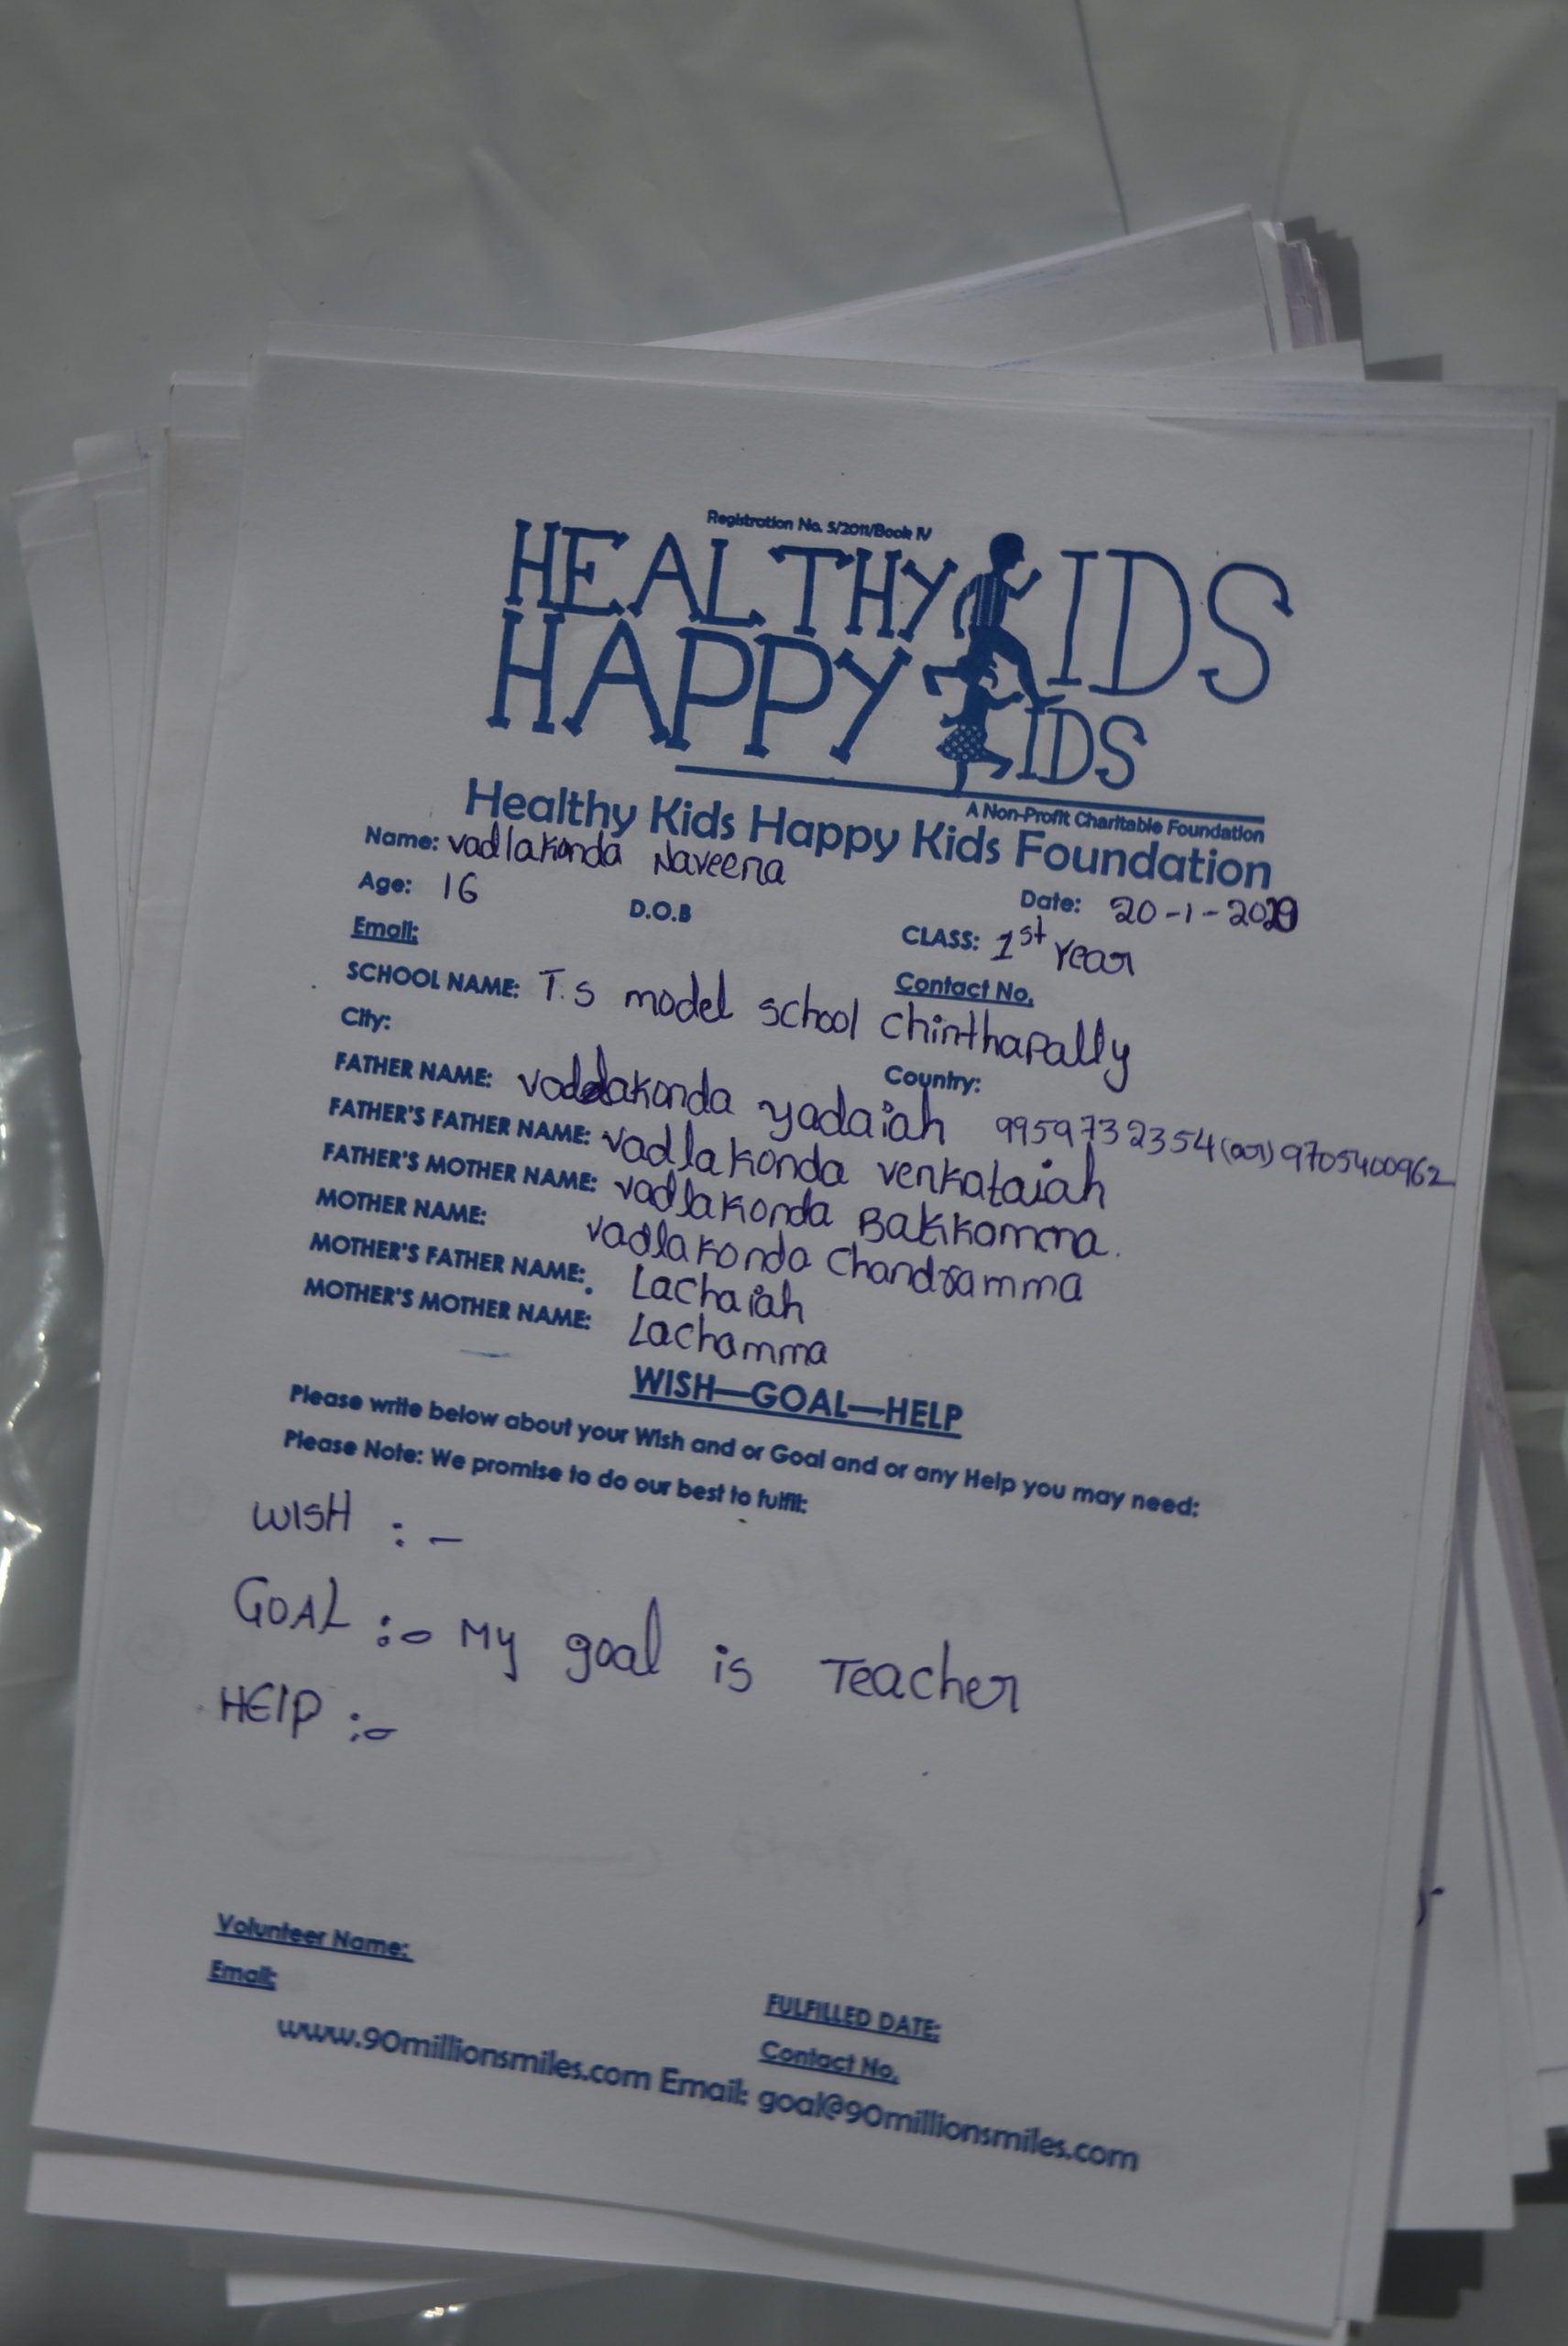 Registration No. 5/2011/Book IV
HEALTHY KIDS
HAPPY KIDS
A Non-Profit Charitable Foundation
Healthy Kids Happy Kids Foundation
Name: Vadlakonda Naveena
Date: 20-1-2020
Age: 16 D.O.B CLASS: 1st Year
Email: Contact No.
SCHOOL NAME: T.S model school Chinthapally
City: Country:
FATHER NAME: Vadlakonda yadaiah 9959732354 (or) 9705400962
FATHER'S FATHER NAME: Vadlakonda venkataiah
FATHER'S MOTHER NAME: Vadlakonda Bakkamma.
MOTHER NAME: Vadlakonda Chandramma
MOTHER'S FATHER NAME: Lachaiah
MOTHER'S MOTHER NAME: Lachamma
WISH—GOAL—HELP
Please write below about your Wish and or Goal and or any Help you may need:
Please Note: We promise to do our best to fulfil:
WISH :-
GOAL :- My goal is Teacher
HElP :-
Volunteer Name: FULFILLED DATE:
Email: Contact No.
www.90millionsmiles.com Email: goal@90millionsmiles.com